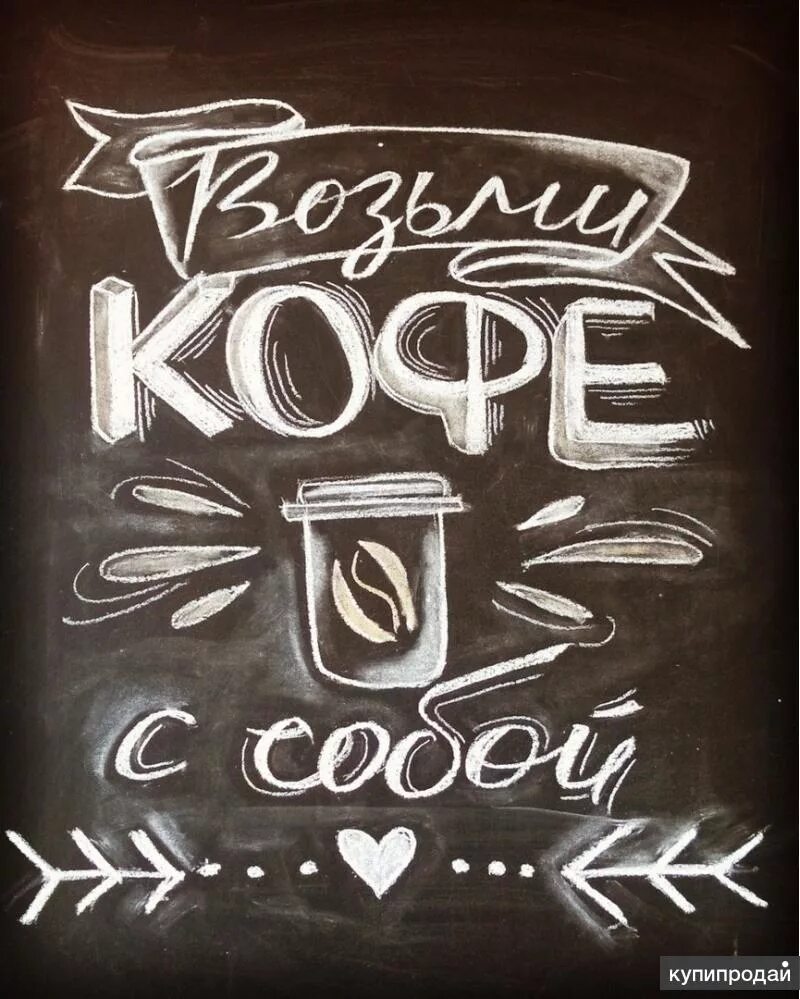 Возьми
КОФЕ
с собой
купипродай